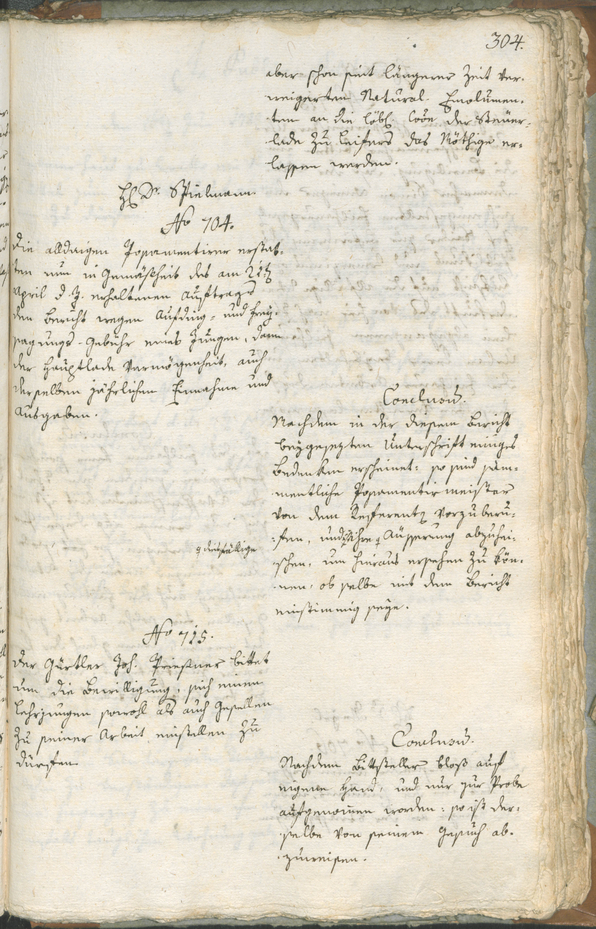 304.
aber schon seit längerer Zeit ver-
weigerten Natural. Emolumen-
ten an die löbl. Cõõe der Steuer-
lade zu Leifers das Nöthige er-
lassen werden.
H. Dr. Spielmann.
No 704.
Die alldaigen Posamentierer erstat-
ten nun in Gemäßheit des am 21t
April d. J. erhaltenen Auftrags
den Bericht wegen Aufding- und Frey-
sagungs-Gebühr eines Jungen, dann
der Hauptlade Vermögenheit, auch
derselben jährlichen Einnahme und
Ausgaben.
Conclusum.
Nachdem in der diesem Bericht
beygesezten Unterschrift einiges
Bedenken erscheinet: so sind säm-
mentliche Posamentirmeister
von dem Referenten vorzuberu-
fen, und ihre Äusserung abzuhei-
schen, um hieraus ersehen zu kön-
nen, ob selbe mit dem Bericht
einstimmig seye.
diesfällige
No 715.
Der Gürtler Joh. Priestner bittet
um die Bewilligung, sich einen
Lehrjungen sowohl als auch Gesellen
zu seiner Arbeit einstellen zu
dürfen.
Conclusum.
Nachdem Bittsteller bloß auf
eigene Hand, und nur zur Probe
aufgenom̄en worden: so ist der-
selbe von seinem Gesuch ab-
zuweisen.